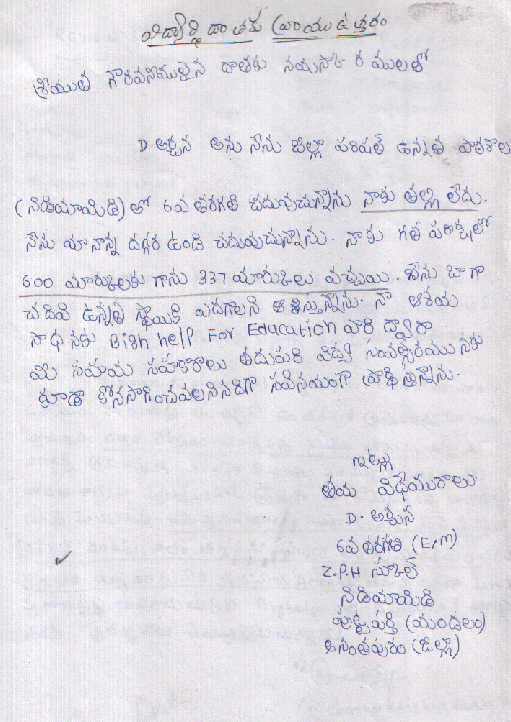 విద్యార్థి దాతకు వ్రాయు ఉత్తరం
శ్రీయుత గౌరవనియులైన దాతకు నమస్కారములతో
D. అర్చన అను నేను జిల్లా పరిషత్ ఉన్నత పాఠశాల
(నిడిమామిడి) లో 6వ తరగతి చదువుచున్నాను నాకు తల్లి లేదు.
నేను మా నాన్న దగ్గర ఉండి చదువుచున్నాను. నాకు గత పరిక్షలో
600 మార్కులకు గాను 337 మార్కులు వచ్చాయి. నేను బాగా
చదివి ఉన్నత స్థాయికి ఎదగాలని ఆశిస్తున్నాను. నా ఆశయ
సాధనకు Bigh help For Education వారి ద్వారా
మీ సహాయ సహకారాలు తదుపరి విద్యా సంవత్సరమునకు
కూడా కొనసాగించవలసినదిగా సవినయంగా ప్రార్థిస్తున్నాను.
ఇట్లు
తమ విధేయురాలు
D. అర్చన
6వ తరగతి (E/M)
Z.P.H స్కూల్
నిడిమామిడి
పుట్టపర్తి (మండలం)
అనంతపురం (జిల్లా)